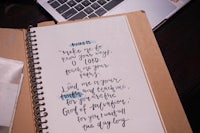 make me to
know your ways,
O LORD
teach me your
paths.
Lead me in your
truth and teach me,
for you are the
God of my salvation;
for you I wait all
the day long